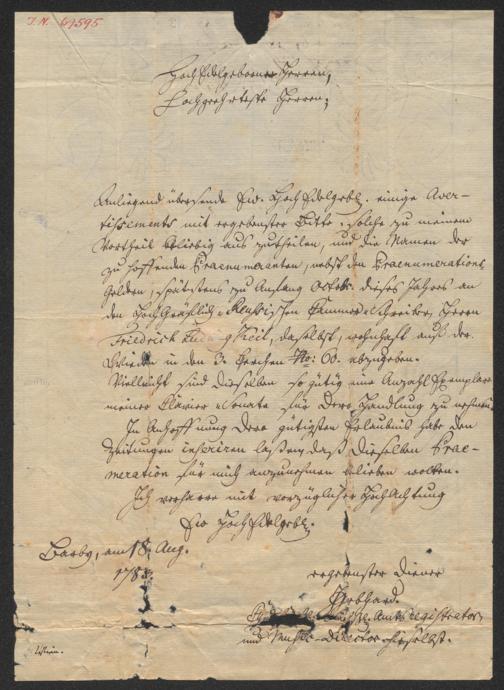 I.N. 67595
HochEdelgeborne Herren,
Hochgeehrteste Herren;
Anliegend übersende Ew. HochEdelgebl. einige Aver-
tissements mit ergebenster Bitte, solche zu meinem
Vortheil beliebig aus zutheilen, und die Namen der
zu hoffenden Praenumeranten, nebst den Praenumerations
Geldern, spätestens zu Anfang Octobr. dieses Jahres an
den Hochgräflich Reußischen Cammer-Schreiber, Herrn
Friedrich Keil, daselbst, wohnhaft auf der
in den No: 00. abzugeben.
Vielleicht sind dieselben so gütig eine Anzahl Exemplare
meiner Clavier Sonate für Dero Handlung zu nehmen.
In Anhoffnung Dero gütigsten Erlaubniß habe den
Zeitungen inseriren laßen, daß dieselben Prae-
numeration für mich anzunehmen belieben wolten.
Ich verharre mit vorzüglicher Hochachtung
Ew HochEdelgebl.
Barby, am 18. Aug.
178
ergebenster Diener
Gebhard.
Amts registrator,
und Music-Director hieselbst.